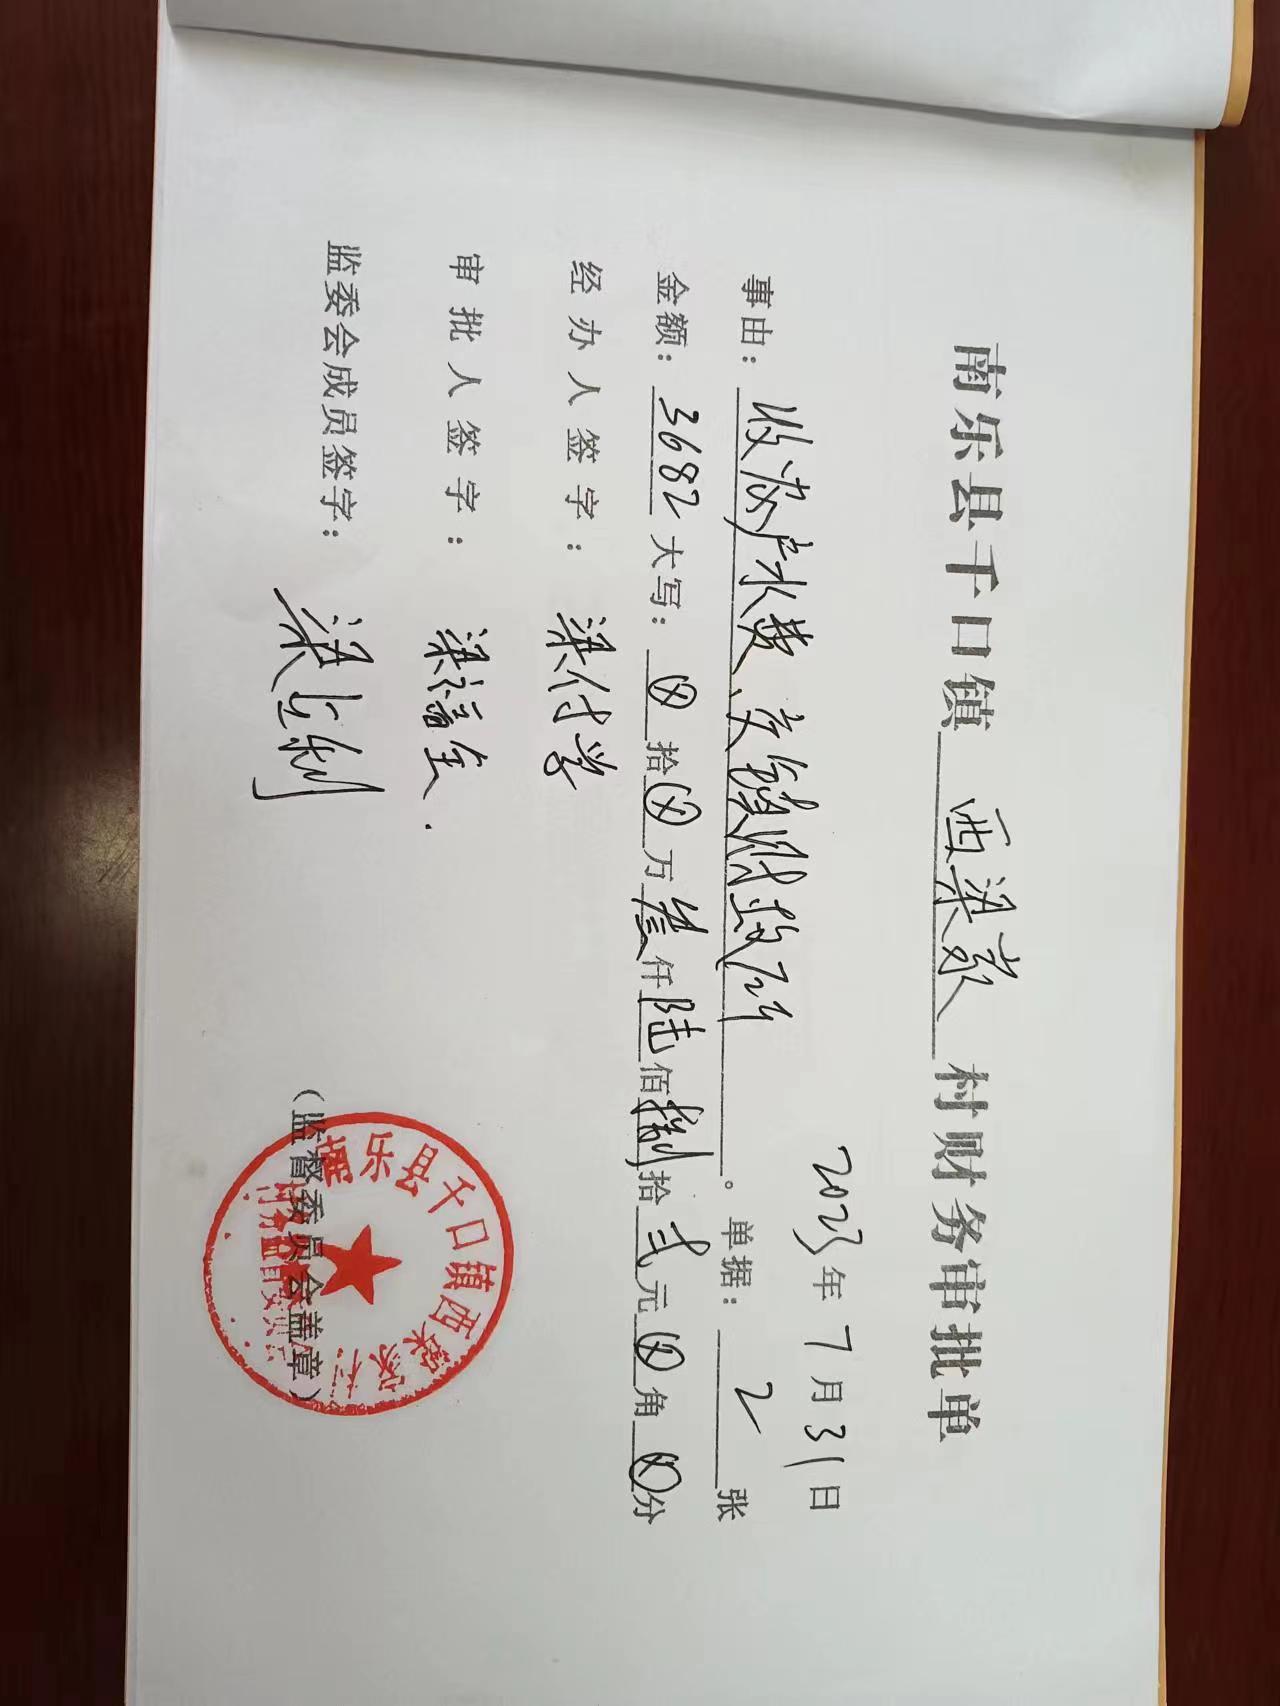 南乐县千口镇西梁村村财务审批单
2023年7月31日
事由：收农户水费、交镇财政所。单据：2张
金额：3682大写：⊗拾⊗万叁仟陆佰捌拾弍元⊗角⊗分
经办人签字：梁付学
审批人签字：梁福全.
监委会成员签字：梁
（监督委员会盖章）
南乐县千口镇西梁家村
村务监督委员会